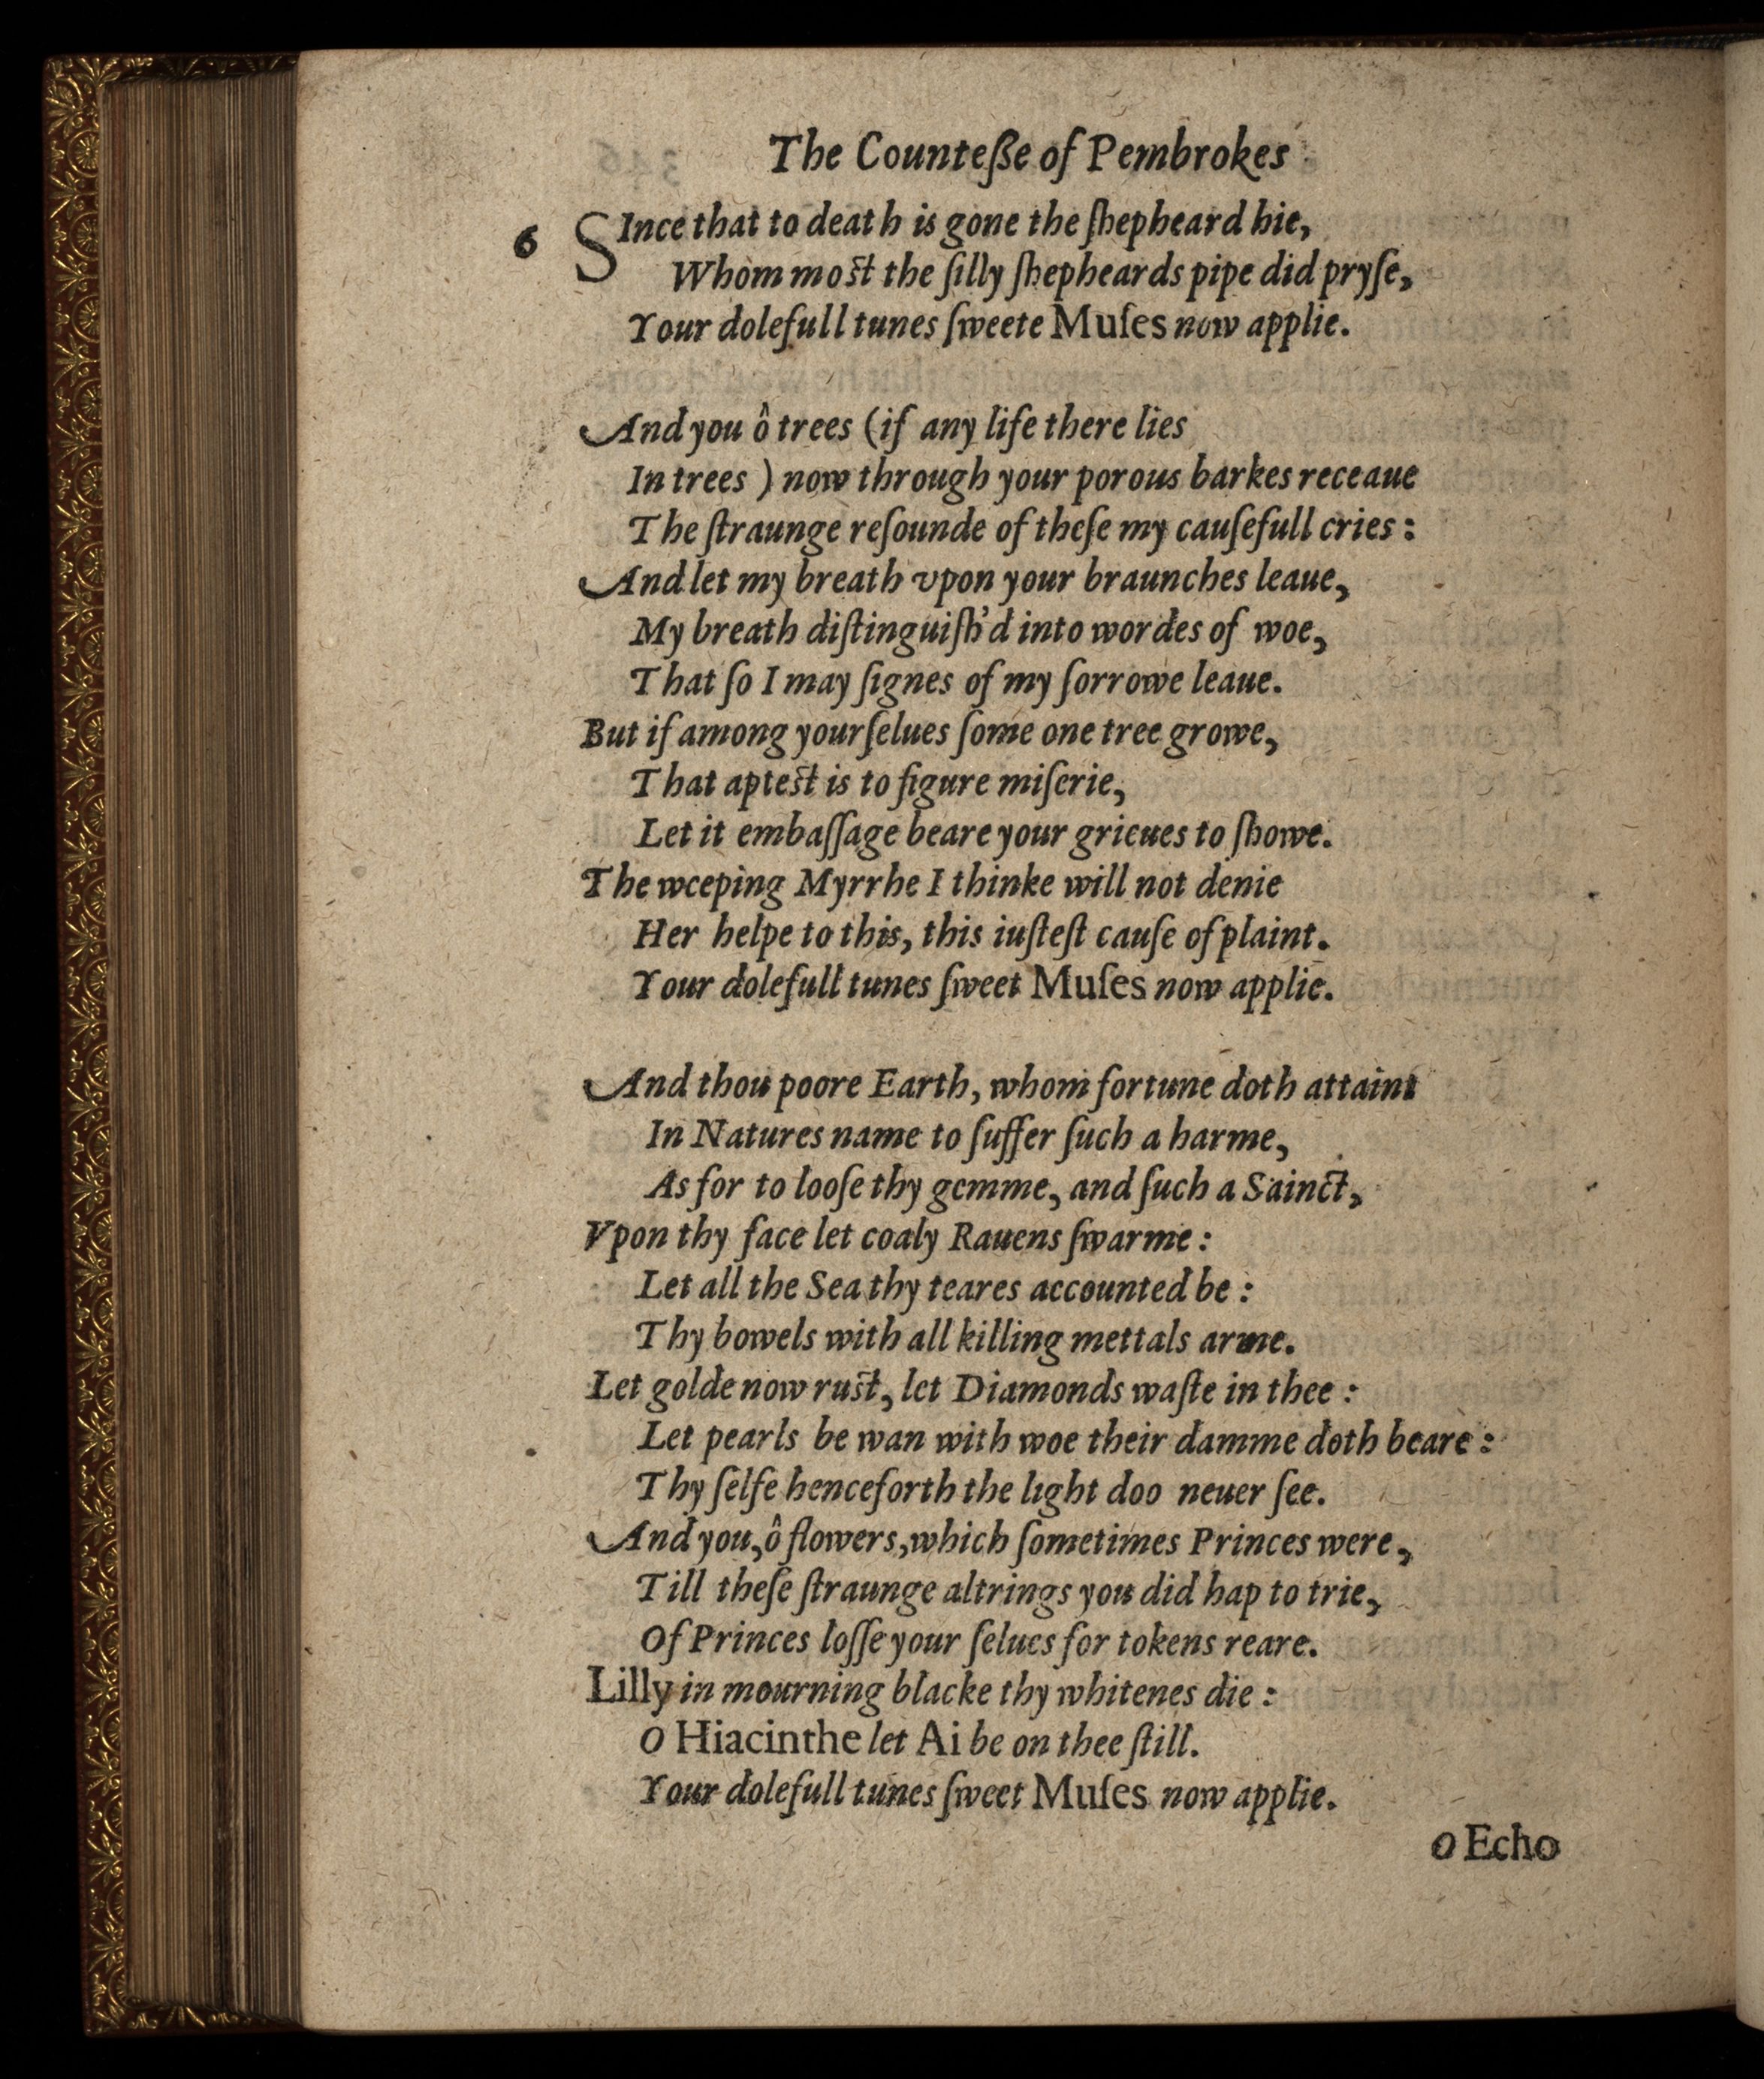 The Counteſſe of Pembrokes
6 SInce that to death is gone the ſhepheard hie,
Whom moſt the ſilly ſhepheards pipe did pryſe,
Your dolefull tunes ſweete Muſes now applie.
And you ô trees (if any life there lies
In trees ) now through your porous barkes receaue
The ſtraunge reſounde of theſe my cauſefull cries :
And let my breath vpon your braunches leaue,
My breath diſtinguiſh'd into wordes of woe,
That ſo I may ſignes of my ſorrowe leaue.
But if among yourſelues ſome one tree growe,
That apteſt is to figure miſerie,
Let it embaſſage beare your grieues to ſhowe.
The weeping Myrrhe I thinke will not denie
Her helpe to this, this iuſteſt cauſe of plaint.
Your dolefull tunes ſweet Muſes now applie.
And thou poore Earth, whom fortune doth attaint
In Natures name to ſuffer ſuch a harme,
As for to looſe thy gemme, and ſuch a Sainct,
Vpon thy face let coaly Rauens ſwarme :
Let all the Sea thy teares accounted be :
Thy bowels with all killing mettals arme.
Let golde now ruſt, let Diamonds waſte in thee :
Let pearls be wan with woe their damme doth beare :
Thy ſelfe henceforth the light doo neuer ſee.
And you, ô flowers, which ſometimes Princes were,
Till theſe ſtraunge altrings you did hap to trie,
Of Princes loſſe your ſelues for tokens reare.
Lilly in mourning blacke thy whitenes die :
O Hiacinthe let Ai be on thee ſtill.
Your dolefull tunes ſweet Muſes now applie.
O Echo